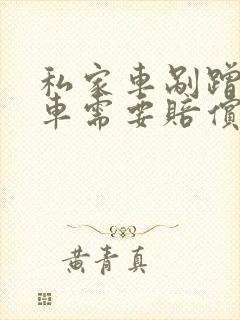 私家車剐蹭
車需要賠償
黄青真